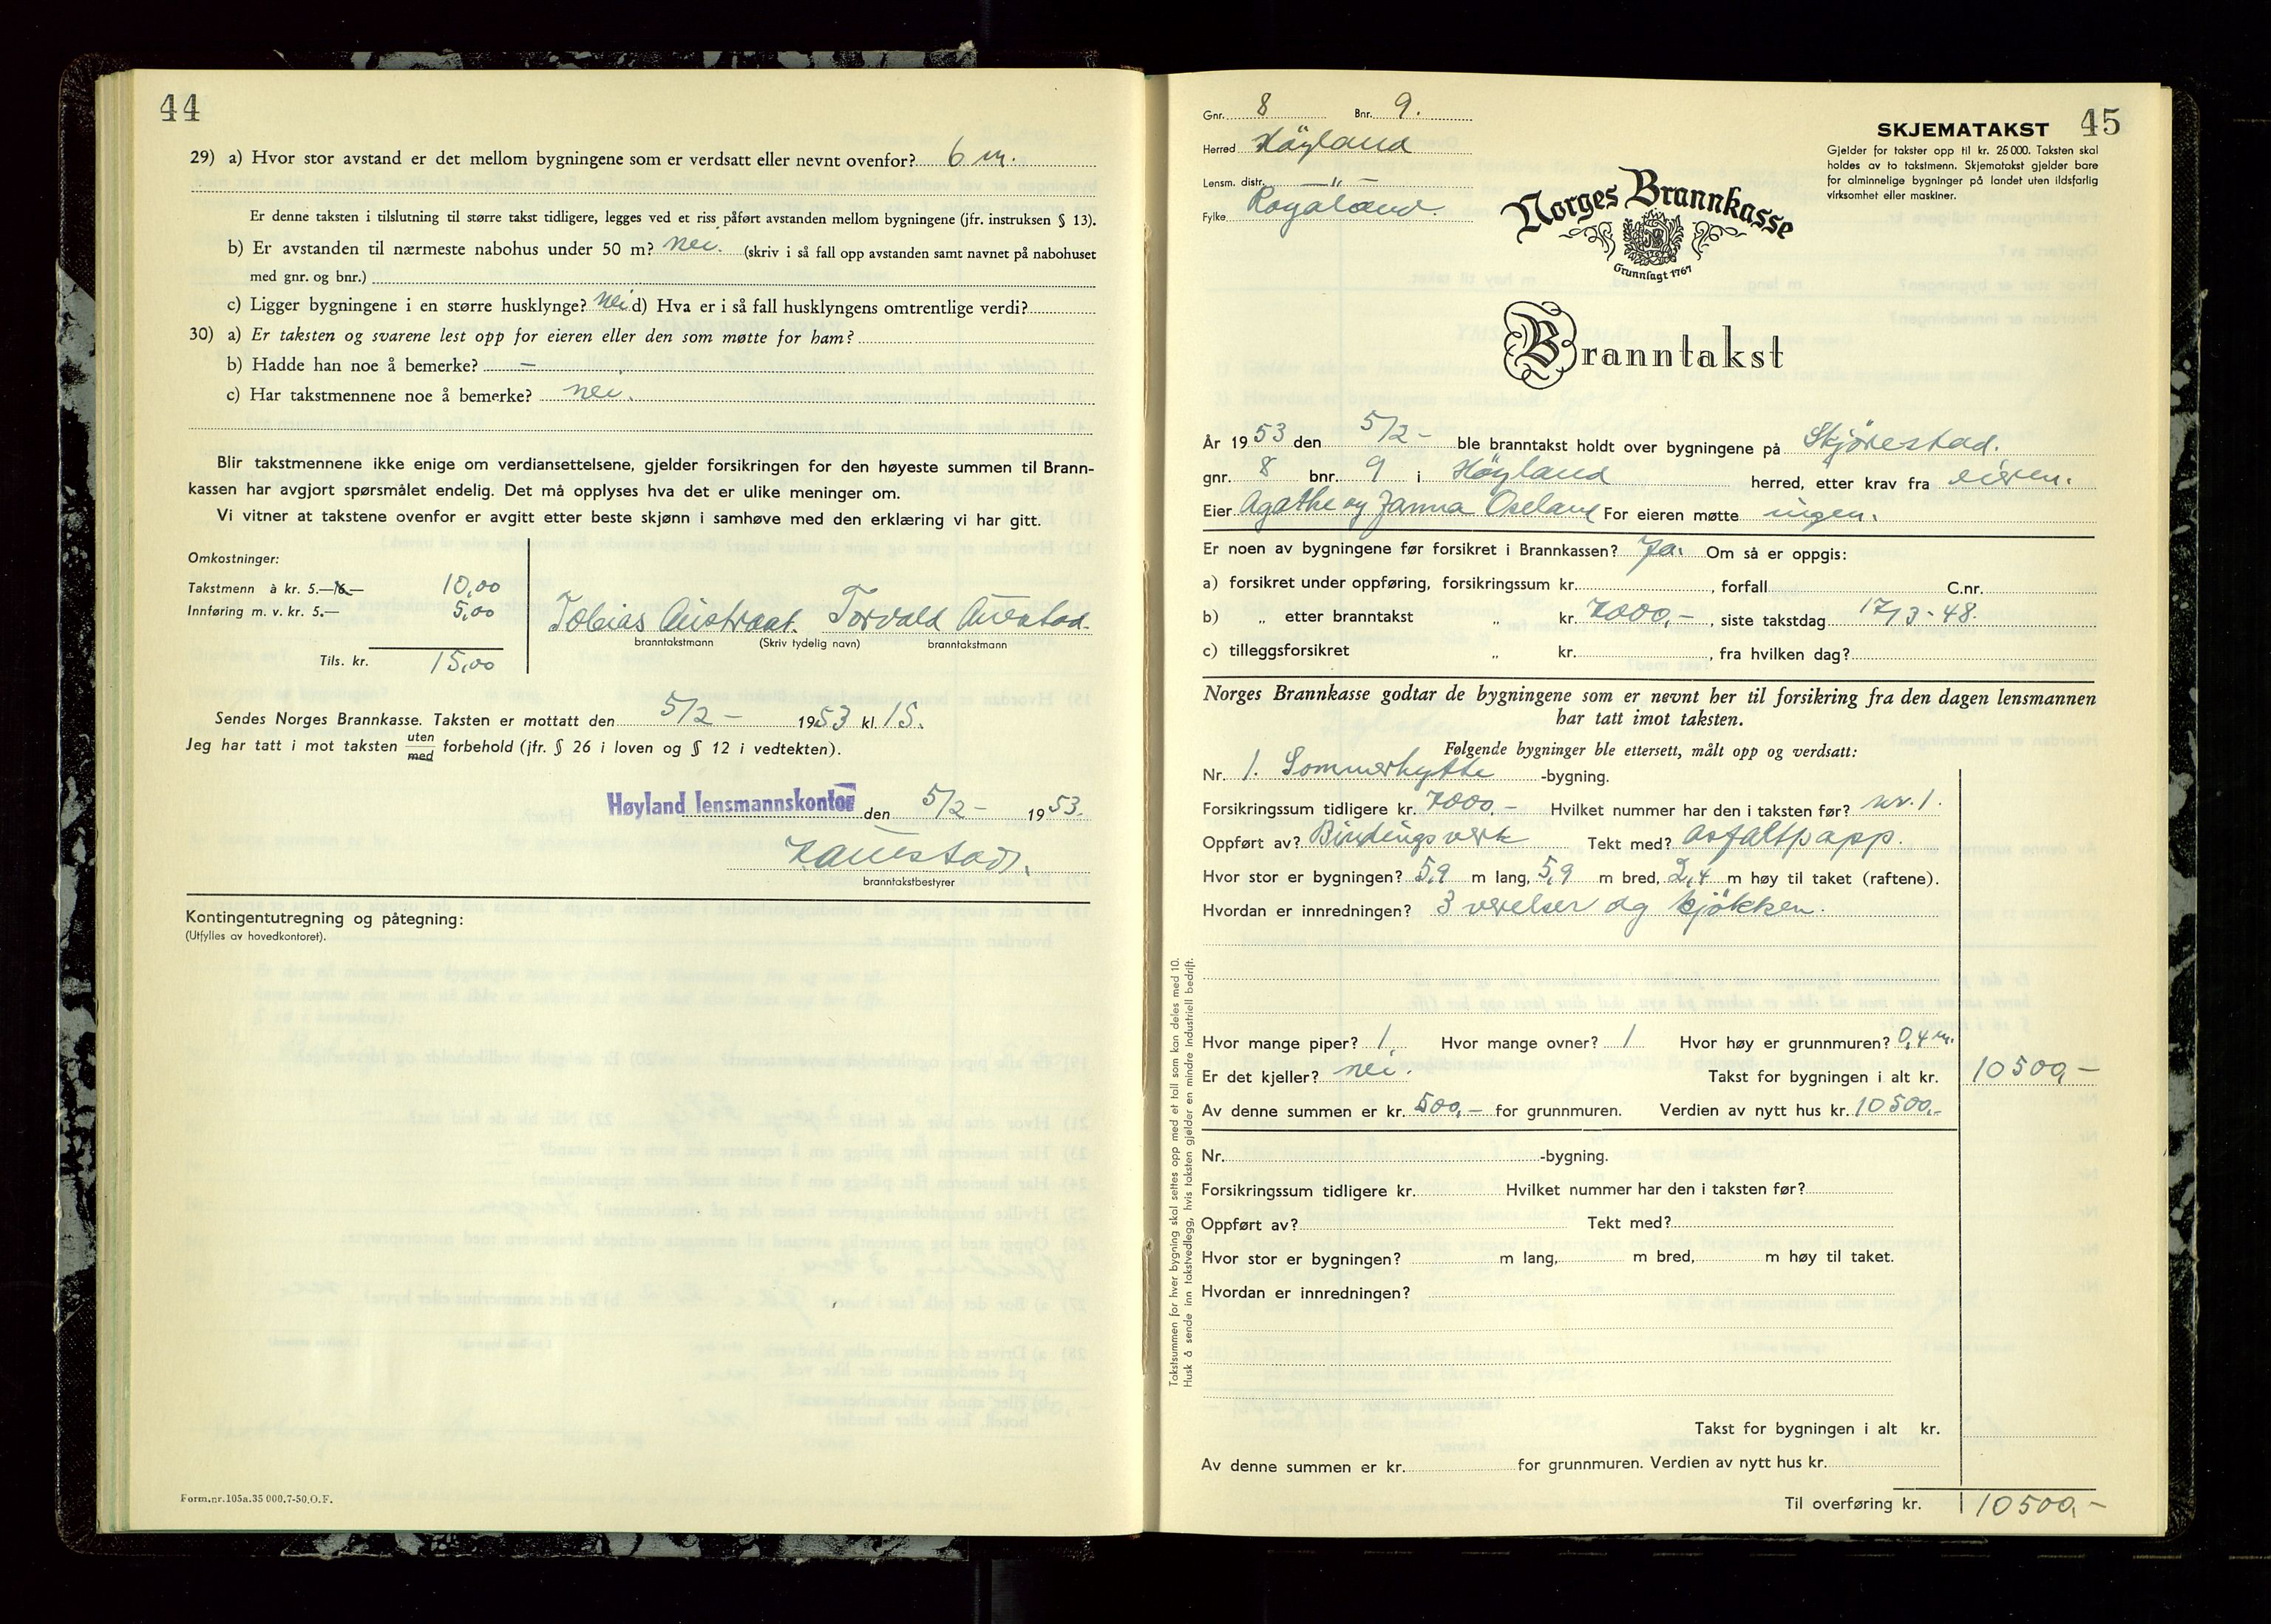 44
29) a) Hvor stor avstand er det mellom bygningene som er verdsatt eller nevnt ovenfor? 6 m.
Er denne taksten i tilslutning til større takst tidligere, legges ved et riss påført avstanden mellom bygningene (jfr. instruksen § 13).
b) Er avstanden til nærmeste nabohus under 50 m? nei. (skriv i så fall opp avstanden samt navnet på nabohuset
med gnr. og bnr.)
c) Ligger bygningene i en større husklynge? nei d) Hva er i så fall husklyngens omtrentlige verdi?
30) a) Er taksten og svarene lest opp for eieren eller den som møtte for ham?
b) Hadde han noe å bemerke? —
c) Har takstmennene noe å bemerke? nei.
Blir takstmennene ikke enige om verdiansettelsene, gjelder forsikringen for den høyeste summen til Brann-
kassen har avgjort spørsmålet endelig. Det må opplyses hva det er ulike meninger om.
Vi vitner at takstene ovenfor er avgitt etter beste skjønn i samhøve med den erklæring vi har gitt.
Omkostninger:
Takstmenn à kr. 5.— 10,00
Innføring m. v. kr. 5.— 5,00
Tobias Austraat. Torvald Auestad.
branntakstmann (Skriv tydelig navn) branntakstmann
Tils. kr. 15,00
Sendes Norges Brannkasse. Taksten er mottatt den 5/2 - 1953 kl. 15.
Jeg har tatt i mot taksten uten/med forbehold (jfr. § 26 i loven og § 12 i vedtekten).
Høyland lensmannskontor den 5/2 - 1953.
branntakstbestyrer
Kontingentutregning og påtegning:
(Utfylles av hovedkontoret).
Form.nr.105a.35 000.7-50.O.F.
Gnr. 8 Bnr. 9.
SKJEMATAKST 45
Herred Höyland
Gjelder for takster opp til kr. 25 000. Taksten skal
holdes av to takstmenn. Skjematakst gjelder bare
for alminnelige bygninger på landet uten ildsfarlig
virksomhet eller maskiner.
Lensm. distr. —"—
Fylke Rogaland.
Norges Brannkasse
Grunnlagt 1767
Branntakst
År 1953 den 5/2 - ble branntakst holdt over bygningene på Skjørestad.
gnr. 8 bnr. 9 i Höyland herred, etter krav fra eieren.
Eier Agathe og Janna Oseland For eieren møtte ingen.
Er noen av bygningene før forsikret i Brannkassen? Ja. Om så er oppgis:
a) forsikret under oppføring, forsikringssum kr. , forfall C.nr.
b) „ etter branntakst „ kr. 7000,- , siste takstdag 17/3 - 48.
c) tilleggsforsikret „ kr. , fra hvilken dag?
Norges Brannkasse godtar de bygningene som er nevnt her til forsikring fra den dagen lensmannen
har tatt imot taksten.
Følgende bygninger ble ettersett, målt opp og verdsatt:
Nr. 1. Sommerhytte -bygning.
Forsikringssum tidligere kr. 7000,- Hvilket nummer har den i taksten før? nr. 1.
Oppført av? Bindingsverk Tekt med? asfaltpapp.
Hvor stor er bygningen? 5,9 m lang, 5,9 m bred, 2,4 m høy til taket (raftene).
Hvordan er innredningen? 3 værelser og kjökken.
Hvor mange piper? 1. Hvor mange ovner? 1 Hvor høy er grunnmuren? 0,4 m.
Er det kjeller? nei. Takst for bygningen i alt kr. 10500,-
Av denne summen er kr. 500,- for grunnmuren. Verdien av nytt hus kr. 10500,-
Nr. -bygning.
Forsikringssum tidligere kr. Hvilket nummer har den i taksten før?
Oppført av? Tekt med?
Hvor stor er bygningen? m lang, m bred, m høy til taket.
Hvordan er innredningen?
Takst for bygningen i alt kr.
Av denne summen er kr. for grunnmuren. Verdien av nytt hus kr.
Til overføring kr. 10500,-
Takstsummen for hver bygning skal settes opp med et tall som kan deles med 10.
Husk å sende inn takstvedlegg, hvis taksten gjelder en mindre industriell bedrift.